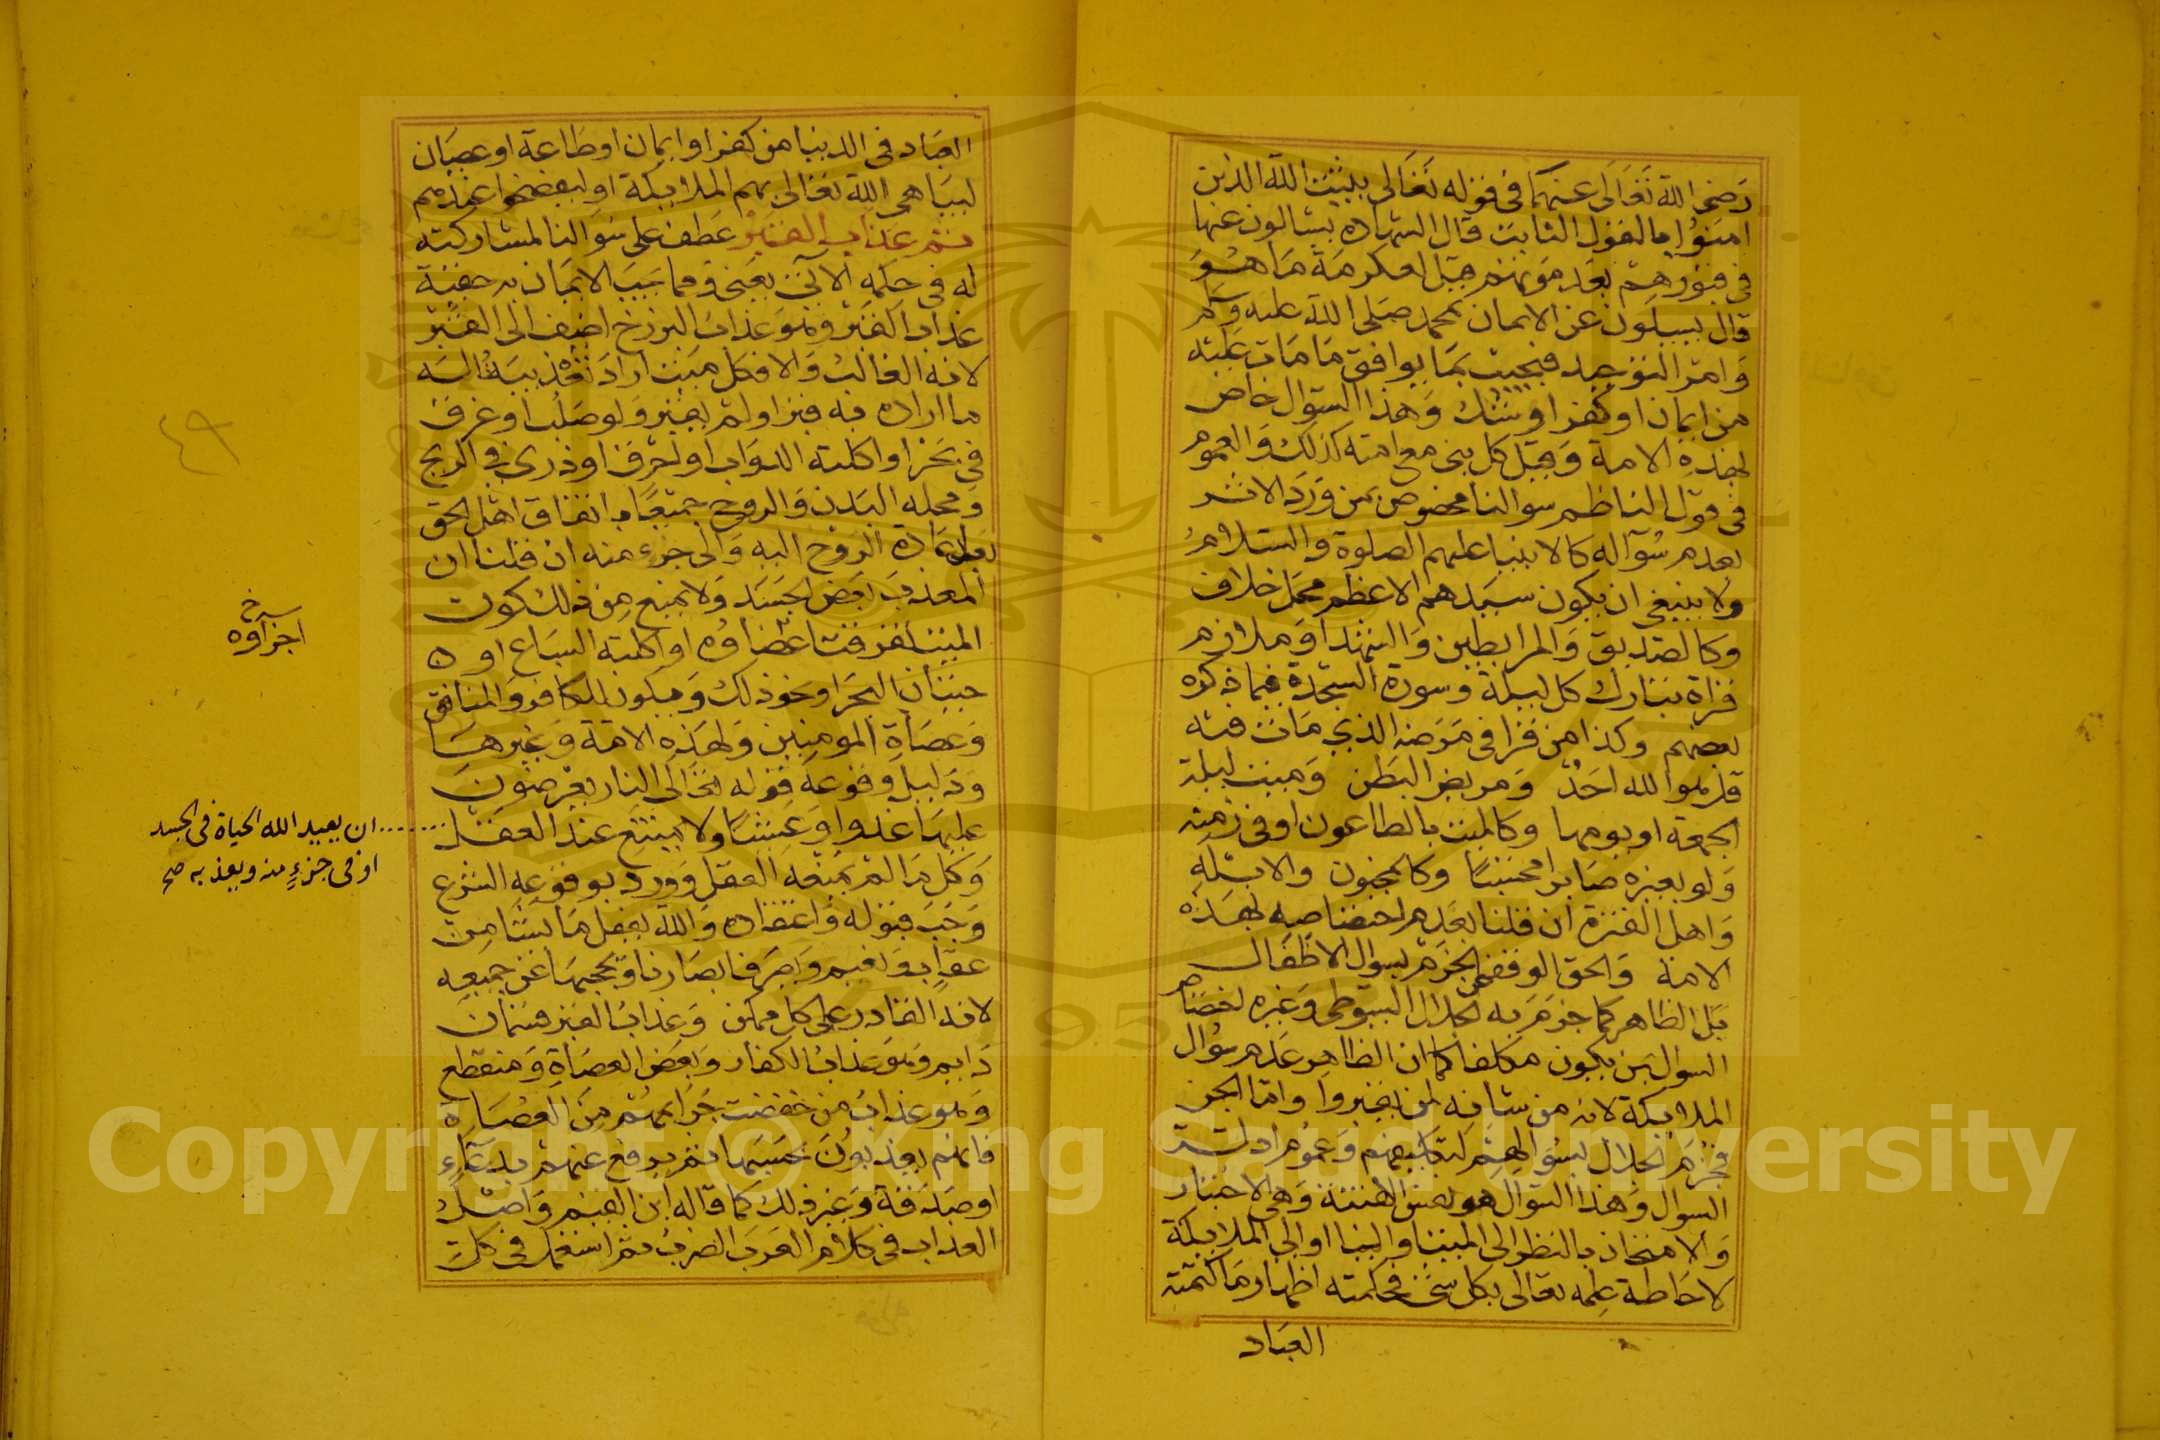 رضى الله تعالى عنهما فى قوله تعالى يثبت الله الذين
امنوا بالقول الثابت قال الشهادة يسالون عنها
فى قبورهم بعد موتهم قيل لعكرمة ما هو
قال يسيلون عن الايمان بمحمد صلى الله عليه وسلم
وامر التوحيد فيجيب بما يوافق ما مات عليه
من ايمان او كفر او شك وهذا السوال خاص
بهذه الامة وقيل كل نبى مع امته كذلك والعموم
فى قول الناظم سوالنا مخصوص بمن ورد الاثر
بعدم سواله كالانبيا عليهم الصلوة والسلام
ولا ينبغى ان يكون سيدهم الاعظم محل خلاف
وكالصديق والمرابطين والشهدا وملازم
قراة تبارك كل ليلة وسورة السجدة فيما ذكره
بعضهم وكذا من قرا فى مرضه الذى مات فيه
قل هو الله احد ومريض البطن وميت ليلة
الجمعة او يومها وكالميت بالطاعون او فى زمنه
ولو بغيره صابرا محتسبا وكالمجنون والابله
واهل الفترة ان قلنا بعدم اختصاصه بهذه
الامة والحق الوقف عن الجزم بسوال الاطفال
بل الظاهر كما جزم به الجلال السيوطى وغيره اختصاص
السوال بمن يكون مكلفا كما ان الظاهر عدم سوال
الملايكة لانه من شانه لمن يقبروا واما الجن
فجزم الجلال بسوالهم لتكليفهم وعموم ادلة
السوال وهذا السوال هو نفس الفتنة وهى الاختبار
والامتحان بالنظر الى الميت او الينا او الى الملايكة
لاحاطة علمه تعالى بكل شئ فحكمته اظهار ما كتمته
العباد
العباد فى الدنيا من كفر او ايمان او طاعة او عصيان
ليباهى الله تعالى بهم الملايكة او ليفضحوا عندهم
ثم عذاب القبر عطف على سوالنا لمشاركته
له فى حكمه الاتى يعنى ومما يجب الايمان به حقية
عذاب القبر وهو عذاب البرزخ اضيف الى القبر
لانه الغالب والا فكل ميت اراد تعذيبه الله
ما اراده به قبر او لم يقبر ولو صلب او غرق
فى بحر او اكلته الدواب او احرق او ذرى فى الريح
ومحله البدن والروح جميعا باتفاق اهل الحق
بعد اعادة الروح اليه والى جزء منه ان قلنا ان
المعذب بعض الجسد ولا يمنع من ذلك كون
الميت تفرقت اعضاوه او اكلته السباع او
حيتان البحر او نحو ذلك ويكون للكافر والمنافق
وعصاة المومنين ولهذه الامة وغيرها
ودليل وقوعه قوله تعالى النار يعرضون
عليها غدوا وعشيا ولا يمتنع عند العقل
وكل ما لم يمنعه العقل وورد بوقوعه الشرع
وجب قبوله واعتقاده والله يفعل ما يشا من
عقاب ونعيم ويصرف ابصارنا ويحجبها عن جميعه
لانه القادر على كل ممكن وعذاب القبر قسمان
دايم وهو عذاب الكفار وبعض العصاة ومنقطع
وهو عذاب من خفت جرايمهم من العصاة
فانهم يعذبون بحسبها ثم يرفع عنهم بدعاء
او صدقة وغير ذلك كما قاله ابن القيم واصل
العذاب فى كلام العرب الضرب ثم استعمل فى كل
٤٩
خ
اجزاوه
ان يعيد الله الحياة فى الجسد
او فى جزء منه ويعذبه صح
Copyright © King Saud University